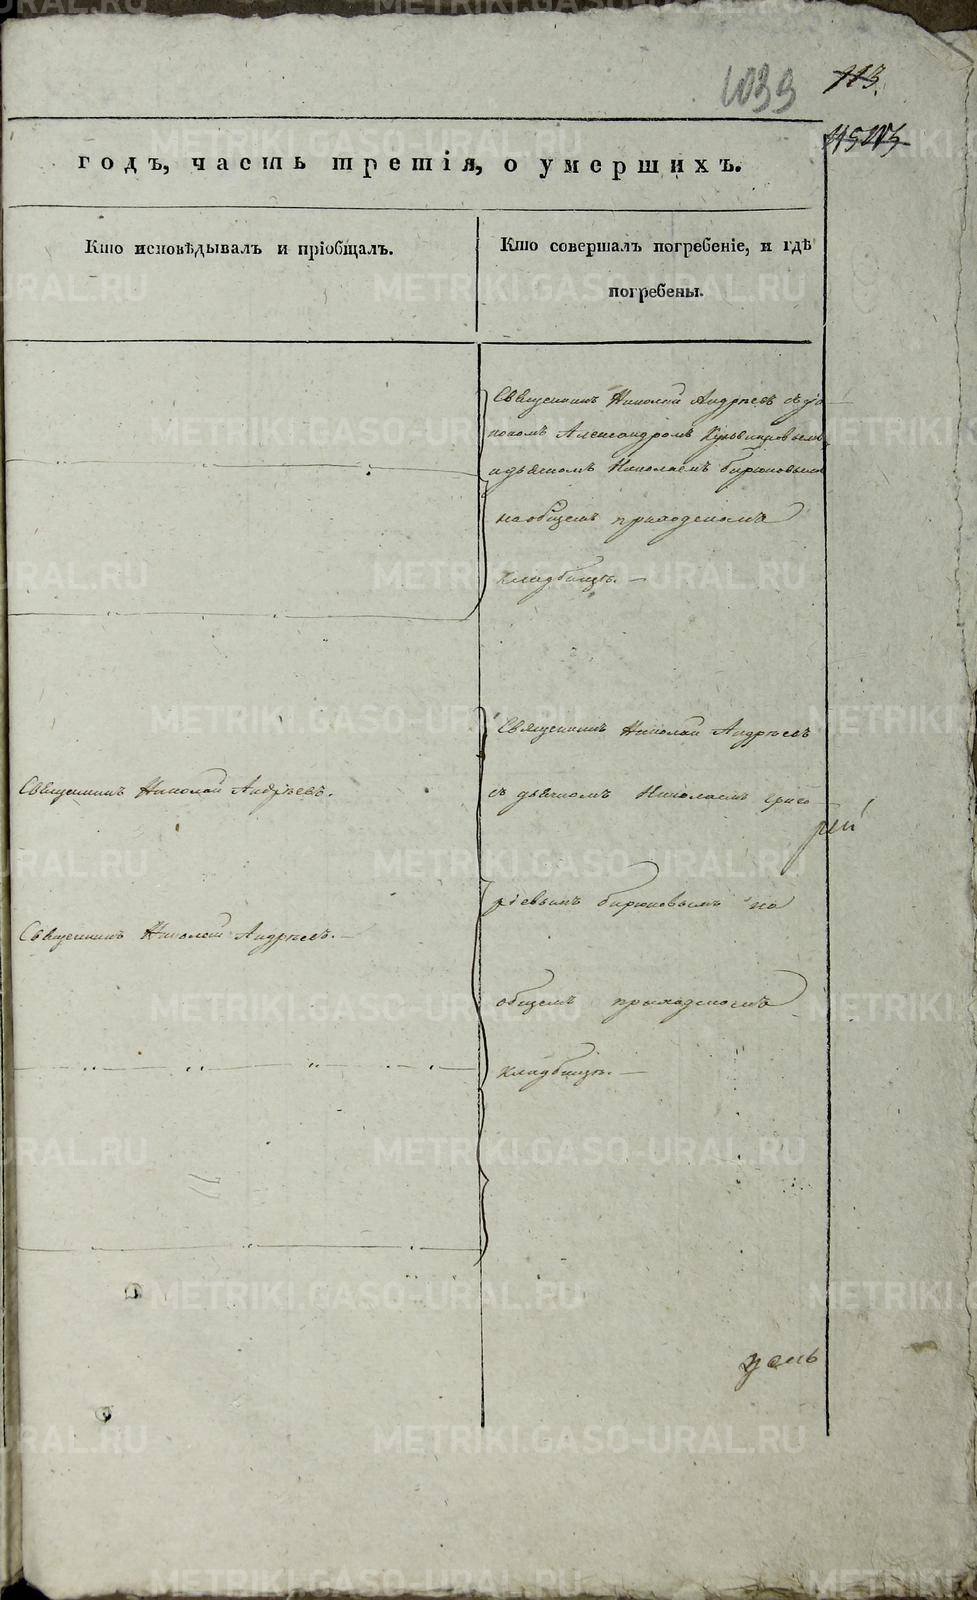 1033
113.
годъ, часть третія, о умершихъ.
Кто исповѣдывалъ и пріобщалъ.
Кто совершалъ погребеніе, и гдѣ
погребены.
Священникъ Николай Андреевъ съ діа
кономъ Александромъ
и дьячкомъ Николаемъ бирюковымъ
на общемъ приходскомъ
кладбищѣ. —
Священникъ Николай Андреевъ.
Священникъ Николай Андреевъ. —
Священникъ Николай Андреевъ
съ дьячкомъ Николаемъ григо
рей
ріевымъ бирюковымъ на
общемъ приходскомъ
кладбищѣ. —
METRIKI.GASO-URAL.RU